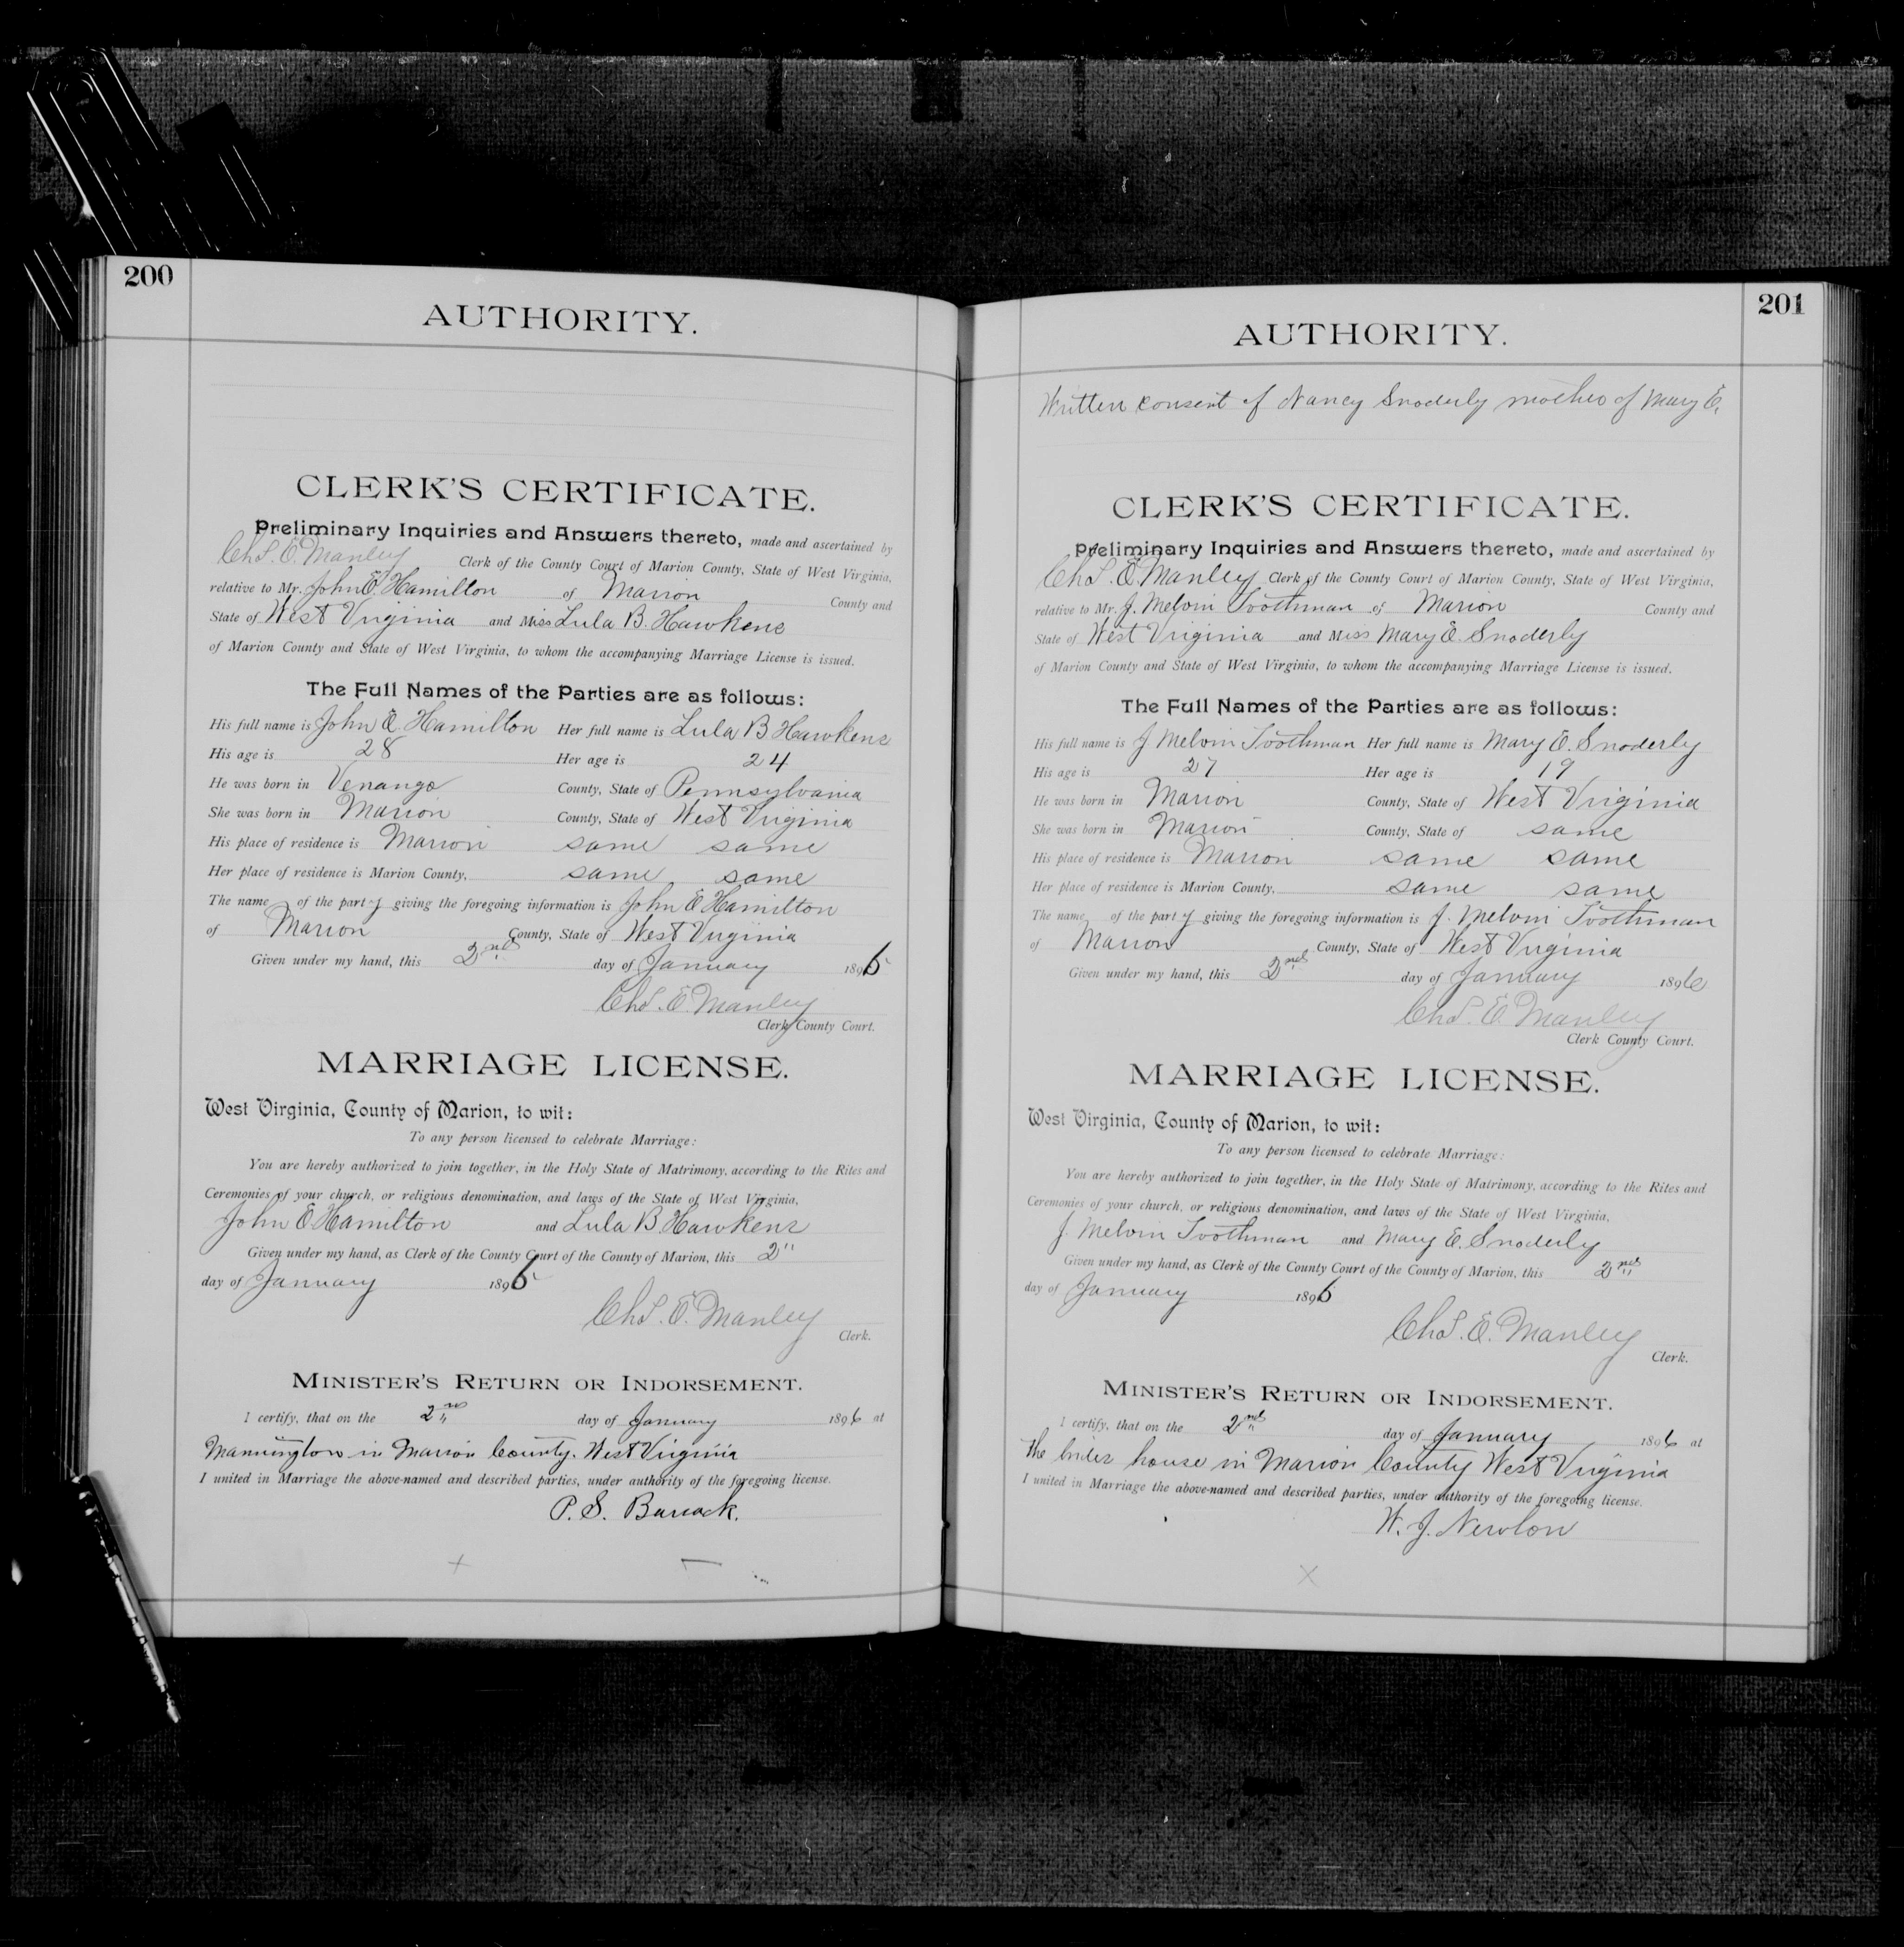 200
AUTHORITY.
CLERK'S CERTIFICATE.
Preliminary Inquiries and Answers thereto, made and ascertained by
Chs. E. Manley Clerk of the County Court of Marion County, State of West Virginia,
relative to Mr. John E. Hamilton of Marion County and
State of West Virginia and Miss Lula B. Hawkens
of Marion County and State of West Virginia, to whom the accompanying Marriage License is issued.
The Full Names of the Parties are as follows:
His full name is John E. Hamilton Her full name is Lula B Hawkens
His age is 28 Her age is 24
He was born in Venango County, State of Pennsylvania
She was born in Marion County, State of West Virginia
His place of residence is Marion same same
Her place of residence is Marion County, same same
The name of the party giving the foregoing information is John E Hamilton
of Marion County, State of West Virginia
Given under my hand, this 2nd day of January 1896
Chs. E. Manley
Clerk County Court.
MARRIAGE LICENSE.
West Virginia, County of Marion, to wit:
To any person licensed to celebrate Marriage:
You are hereby authorized to join together, in the Holy State of Matrimony, according to the Rites and
Ceremonies of your church, or religious denomination, and laws of the State of West Virginia,
John E. Hamilton and Lula B Hawkens
Given under my hand, as Clerk of the County Court of the County of Marion, this 2"
day of January 1896
Chs. E. Manley
Clerk.
MINISTER'S RETURN OR INDORSEMENT.
I certify, that on the 2nd day of January 1896 at
Mannington in Marion County, West Virginia
I united in Marriage the above-named and described parties, under authority of the foregoing license.
P. S.
201
AUTHORITY.
Written consent of Nancy Snoderly mother of Mary E.
CLERK'S CERTIFICATE.
Preliminary Inquiries and Answers thereto, made and ascertained by
Chs. E. Manley Clerk of the County Court of Marion County, State of West Virginia,
relative to Mr. J. Melvin Toothman of Marion County and
State of West Virginia and Miss Mary E. Snoderly
of Marion County and State of West Virginia, to whom the accompanying Marriage License is issued.
The Full Names of the Parties are as follows:
His full name is J Melvin Toothman Her full name is Mary E. Snoderly
His age is 27 Her age is 19
He was born in Marion County, State of West Virginia
She was born in Marion County, State of same
His place of residence is Marion same same
Her place of residence is Marion County, same same
The name of the party giving the foregoing information is J. Melvin Toothman
of Marion County, State of West Virginia
Given under my hand, this 2nd day of January 1896
Chs. E. Manley
Clerk County Court.
MARRIAGE LICENSE.
West Virginia, County of Marion, to wit:
To any person licensed to celebrate Marriage:
You are hereby authorized to join together, in the Holy State of Matrimony, according to the Rites and
Ceremonies of your church, or religious denomination, and laws of the State of West Virginia,
J. Melvin Toothman and Mary E. Snoderly
Given under my hand, as Clerk of the County Court of the County of Marion, this 2nd
day of January 1896
Chs. E. Manley
Clerk.
MINISTER'S RETURN OR INDORSEMENT.
I certify, that on the 2nd day of January 1896 at
the brides house in Marion County West Virginia
I united in Marriage the above-named and described parties, under authority of the foregoing license.
W. J. Newlon